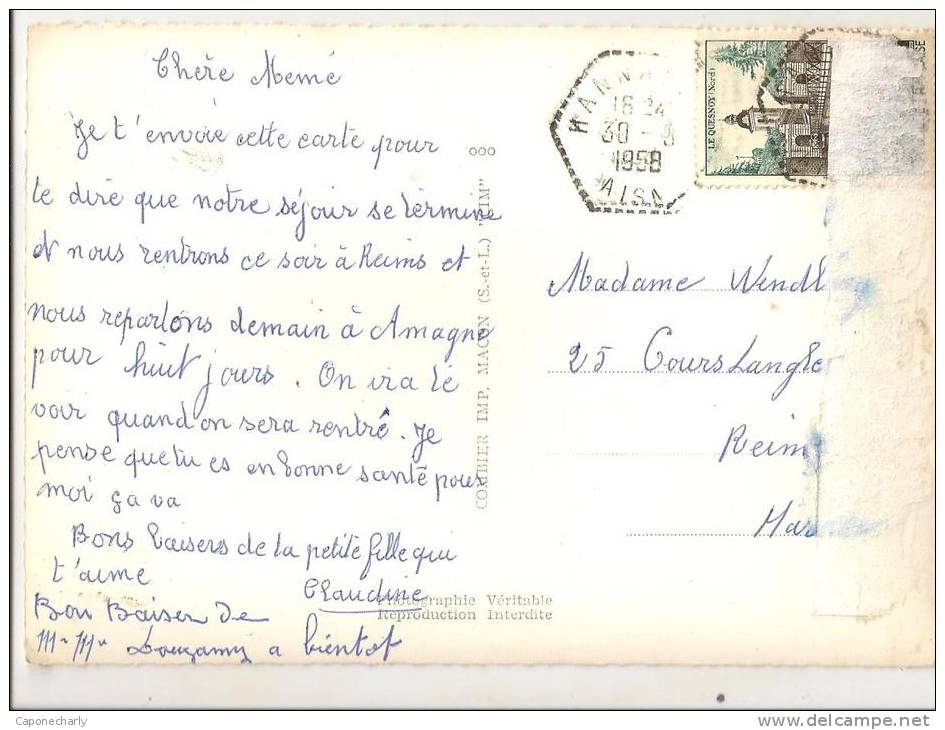 Chère Memé
Je t'envoie cette carte pour
te dire que notre séjour se termine
et nous rentrons ce soir à Reims et
nous repartons demain à Amagne
pour huit jours. On ira te
voir quand on sera rentré. Je
pense que tu es en bonne santé pour
moi ça va
Bons baisers de ta petite fille qui
t'aime
Claudine
Bon Baiser De
a bientot
ooo
COMBIER IMP. MACON (S.-et-L.) "CIM"
Photographie Véritable
Reproduction Interdite
HANNA
18 24
30 - 8
1958
AISN
LE QUESNOY (Nord)
Madame Wendl
25 Cours Langle
Reims
Mar
Caponecharly
delcampe.net